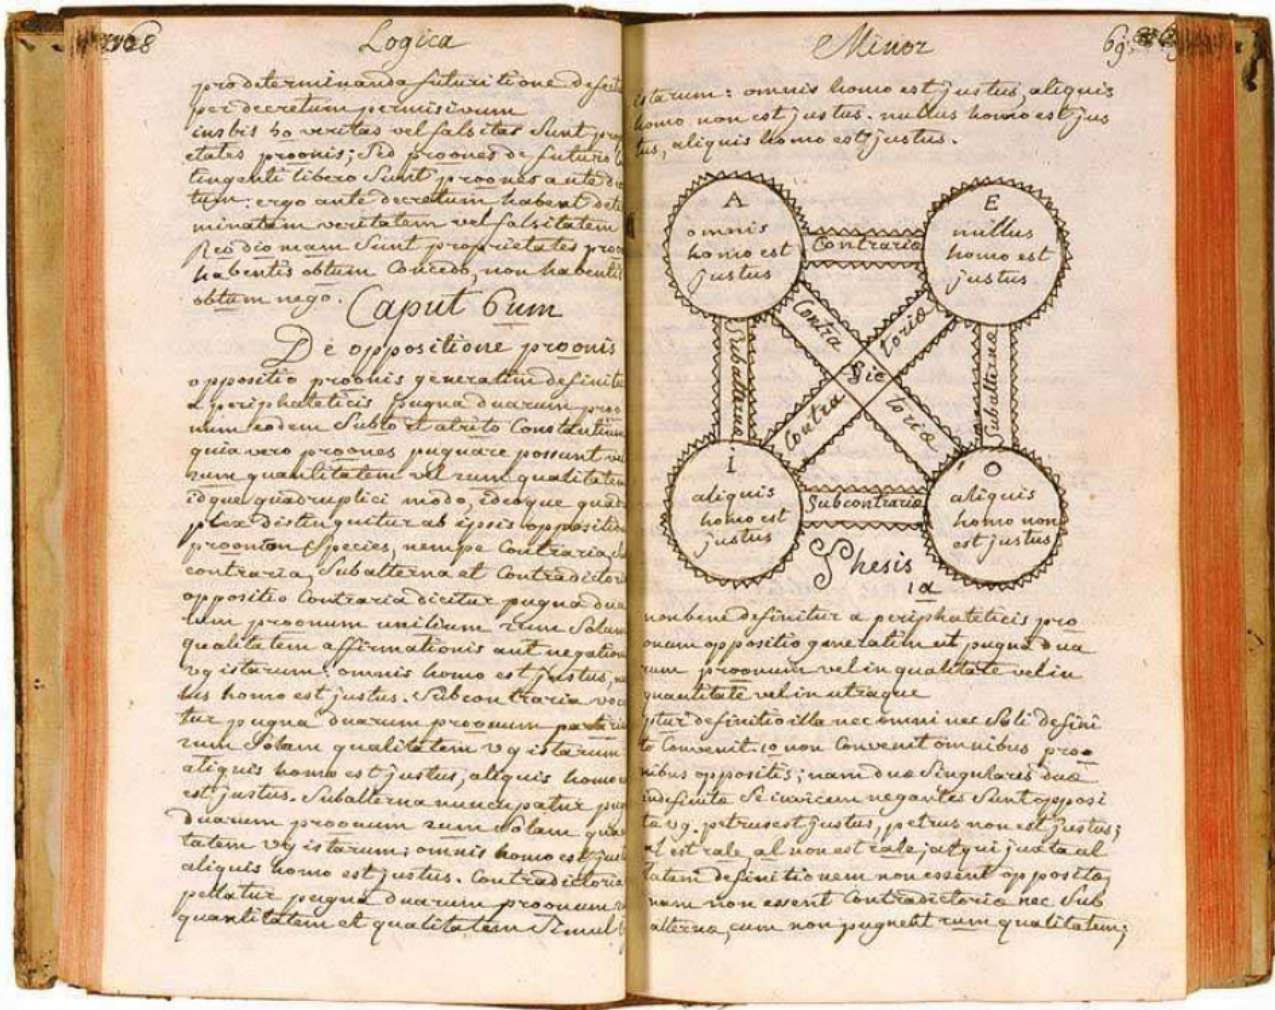 68
Logica
pro determinanda futuritione
per decretum permisivum
veritas vel falsitas sunt
etates proonis; sed proones de futuro
tingenti libero sunt proones ante
tum: ergo ante decretum habent dete
minatam veritatem vel falsitatem
sunt proprietates
habentis obtum concedo, non habentis
obtum nego.
Caput 6um
De oppositione proonis
oppositio proonis generatim definitu
a periphateticis pugna duarum proo
num eodem subto et atrito constantium
quia vero proones pugnare possunt
quantitatem vel qualitatem
idque quadruplici modo, ideoque quad
plex distinguitur ab ipsis oppositio
species, nempe contraria,
contraria, subalterna et contradictori
oppositio contraria dicitur pugna dua
rum proonum solam
qualitatem affirmationis aut negation
vg istarum: omnis homo est justus,
lus homo est justus. Subcontraria voca
tur pugna duarum proonum
solam qualitatem vg istarum
aliquis homo est justus, aliquis homo
est justus. Subalterna nuncupatur pug
duarum proonum solam quan
titatem vg istarum: omnis homo est just
aliquis homo est justus. Contradictoria
pellatur pugna duarum proonum
quantitatem et qualitatem simul
Minor
69
istarum: omnis homo est justus, aliquis
homo non est justus. nullus homo est jus
tus, aliquis homo est justus.
A
omnis
homo est
justus
Contrariæ
E
nullus
homo est
justus
Contra
toriæ
Subalternæ
dic
Subalternæ
Contra
toriæ
i
aliquis
homo est
justus
Subcontrariæ
O
aliquis
homo non
est justus
Thesis
1a
non bene definitur a periphateticis pro
onum oppositio generatim ut pugna dua
rum proonum vel in qualitate vel in
quantitate vel in utraque
definitio illa nec omni nec soli defini
to convenit. 1o non convenit omnibus proo
nibus oppositis; nam duæ singulares duæ
indefinitæ se invicem negantes sunt opposi
tæ vg. petrus est justus, petrus non est justus;
al est rale, al non est rale; atqui juxta al
latam definitionem non essent oppositæ,
nam non essent contradictoriæ nec sub
alternæ, cum non pugnent qualitatem;